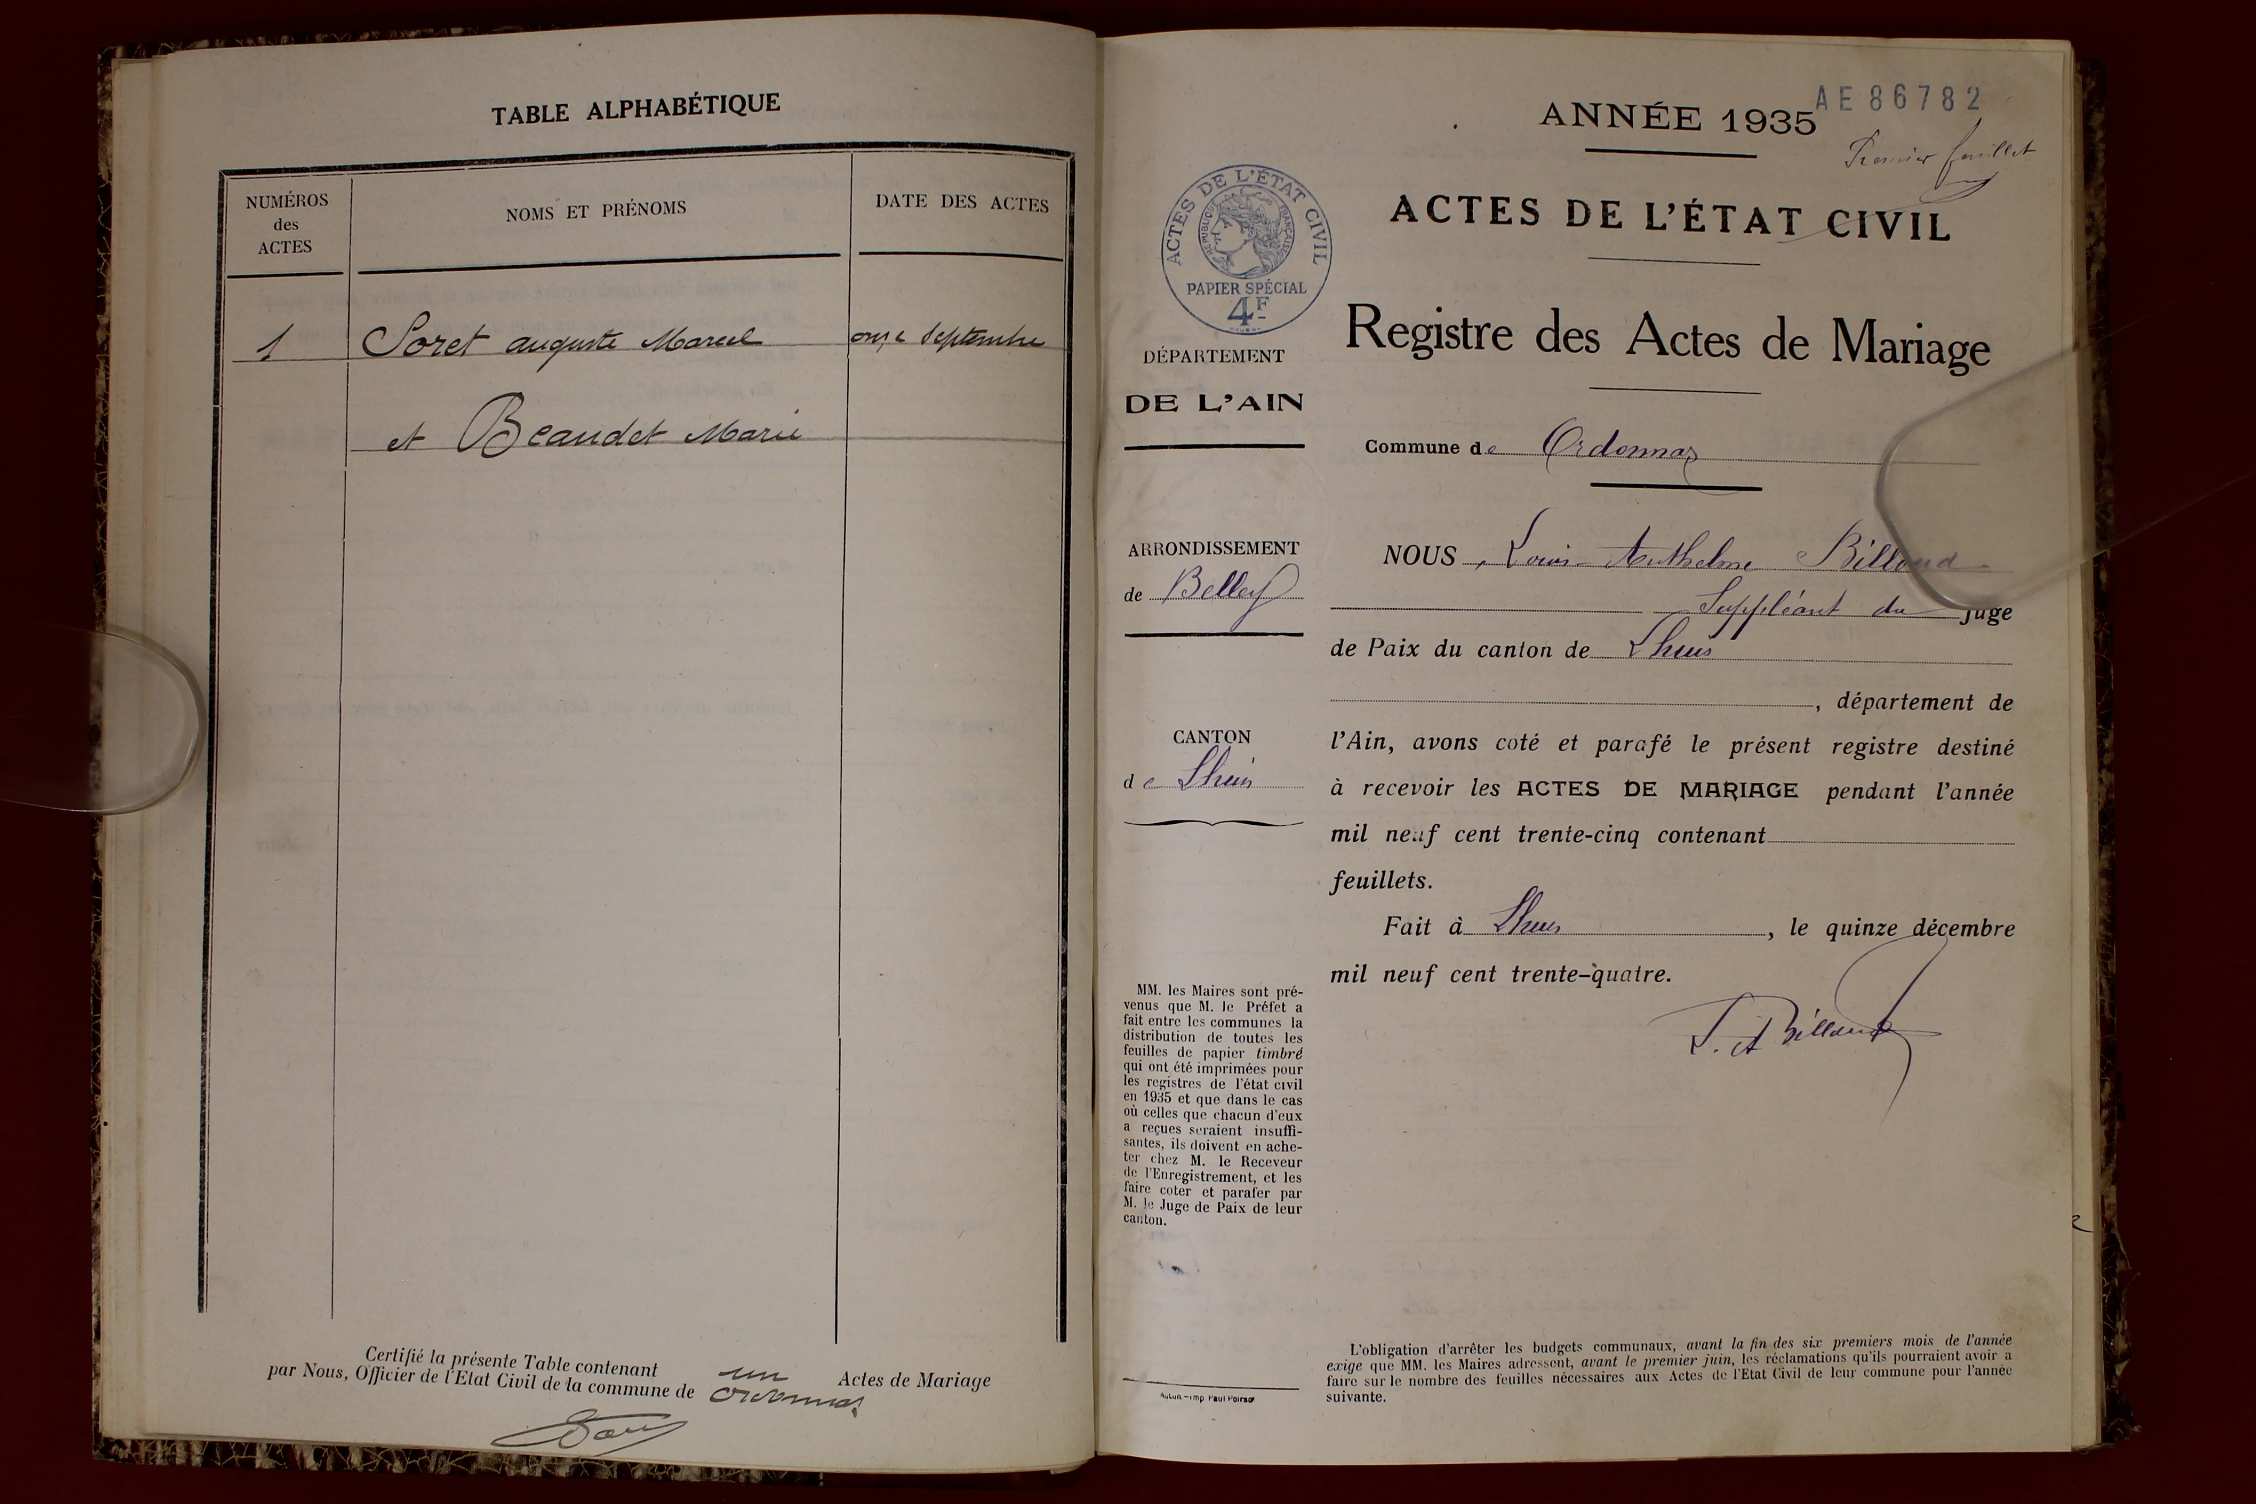 TABLE ALPHABÉTIQUE
NUMÉROS
des
ACTES
NOMS ET PRÉNOMS
DATE DES ACTES
1
Soret auguste Marcel
onze Septembre
et Beaudet Marie
Certifié la présente Table contenant un Actes de Mariage
par Nous, Officier de l'Etat Civil de la commune de ordonnaz
ANNÉE 1935
AE 86782
Premier feuillet
ACTES DE L'ÉTAT CIVIL
RÉPUBLIQUE FRANÇAISE
PAPIER SPÉCIAL
4F
ACTES DE L'ÉTAT CIVIL
Registre des Actes de Mariage
DÉPARTEMENT
DE L'AIN
Commune de Ordonnaz
ARRONDISSEMENT
de Belley
CANTON
de Lhuis
NOUS, Louis Anthelme Billoud
Suppléant du Juge
de Paix du canton de Lhuis
, département de
l'Ain, avons coté et parafé le présent registre destiné
à recevoir les ACTES DE MARIAGE pendant l'année
mil neuf cent trente-cinq contenant
feuillets.
Fait à Lhuis, le quinze décembre
mil neuf cent trente-quatre.
L. A Billoud
MM. les Maires sont pré-
venus que M. le Préfet a
fait entre les communes la
distribution de toutes les
feuilles de papier timbré
qui ont été imprimées pour
les registres de l'état civil
en 1935 et que dans le cas
où celles que chacun d'eux
a reçues seraient insuffi-
santes, ils doivent en ache-
ter chez M. le Receveur
de l'Enregistrement, et les
faire coter et parafer par
M. le Juge de Paix de leur
canton.
Autun - Imp Paul Poirson
L'obligation d'arrêter les budgets communaux, avant la fin des six premiers mois de l'année
exige que MM. les Maires adressent, avant le premier juin, les réclamations qu'ils pourraient avoir a
faire sur le nombre des feuilles nécessaires aux Actes de l'Etat Civil de leur commune pour l'année
suivante.